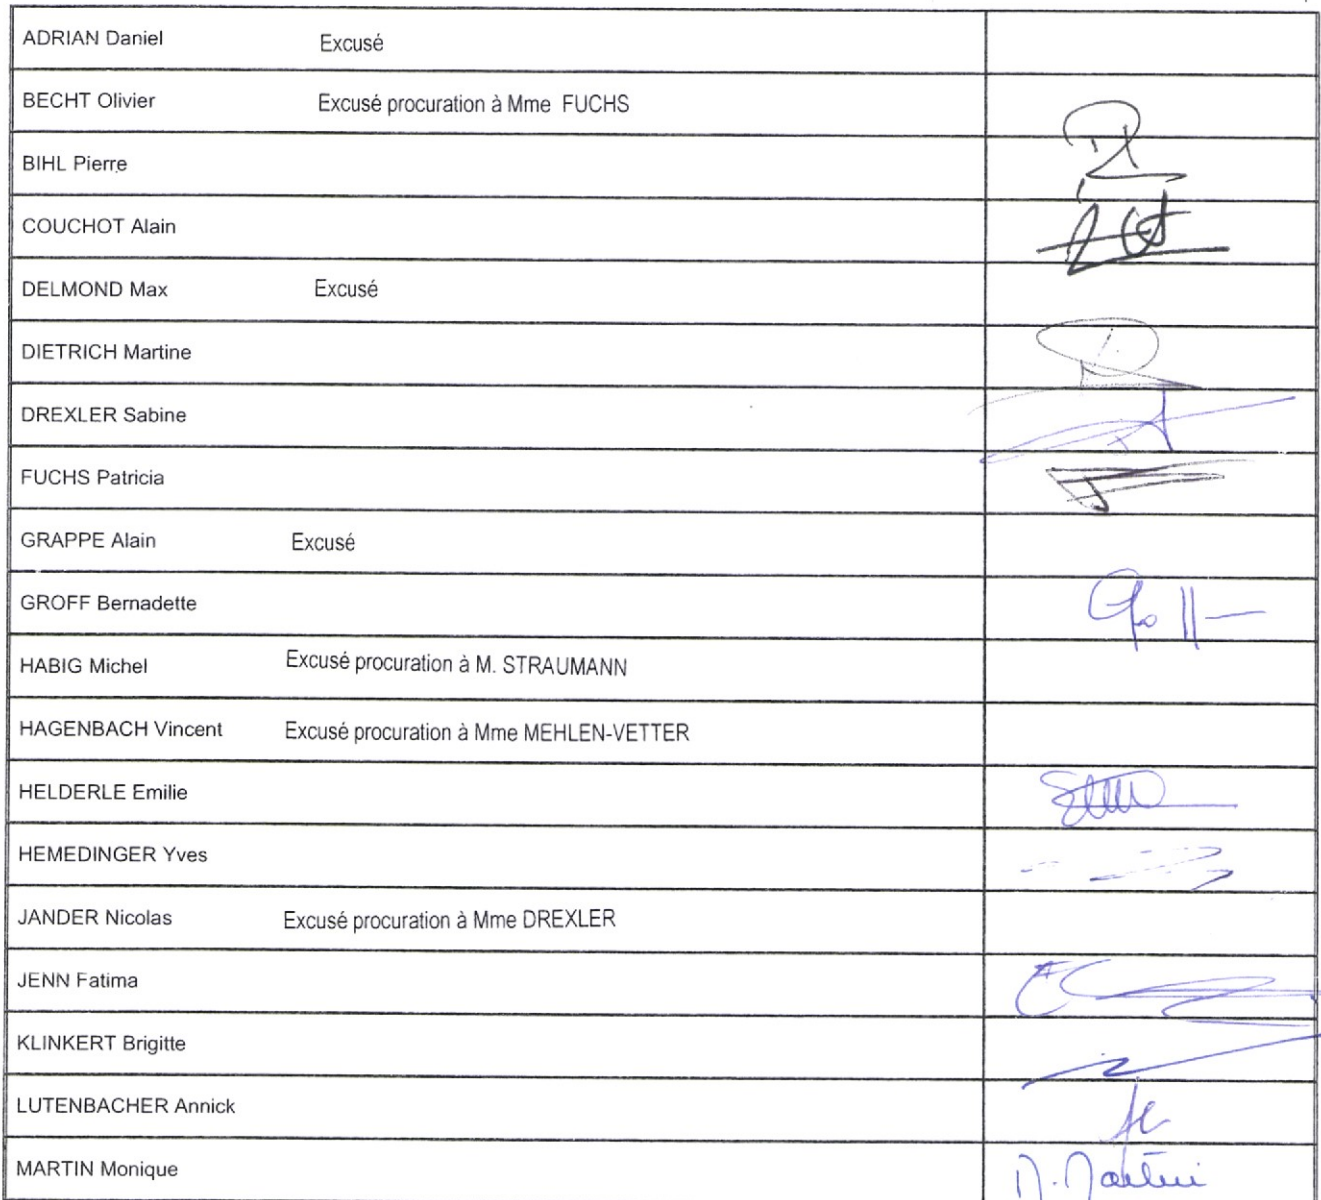 ADRIAN Daniel Excusé
BECHT Olivier Excusé procuration à Mme FUCHS
BIHL Pierre
COUCHOT Alain
DELMOND Max Excusé
DIETRICH Martine
DREXLER Sabine
FUCHS Patricia
GRAPPE Alain Excusé
GROFF Bernadette
HABIG Michel Excusé procuration à M. STRAUMANN
HAGENBACH Vincent Excusé procuration à Mme MEHLEN-VETTER
HELDERLE Emilie
HEMEDINGER Yves
JANDER Nicolas Excusé procuration à Mme DREXLER
JENN Fatima
KLINKERT Brigitte
LUTENBACHER Annick
MARTIN Monique M. Martin